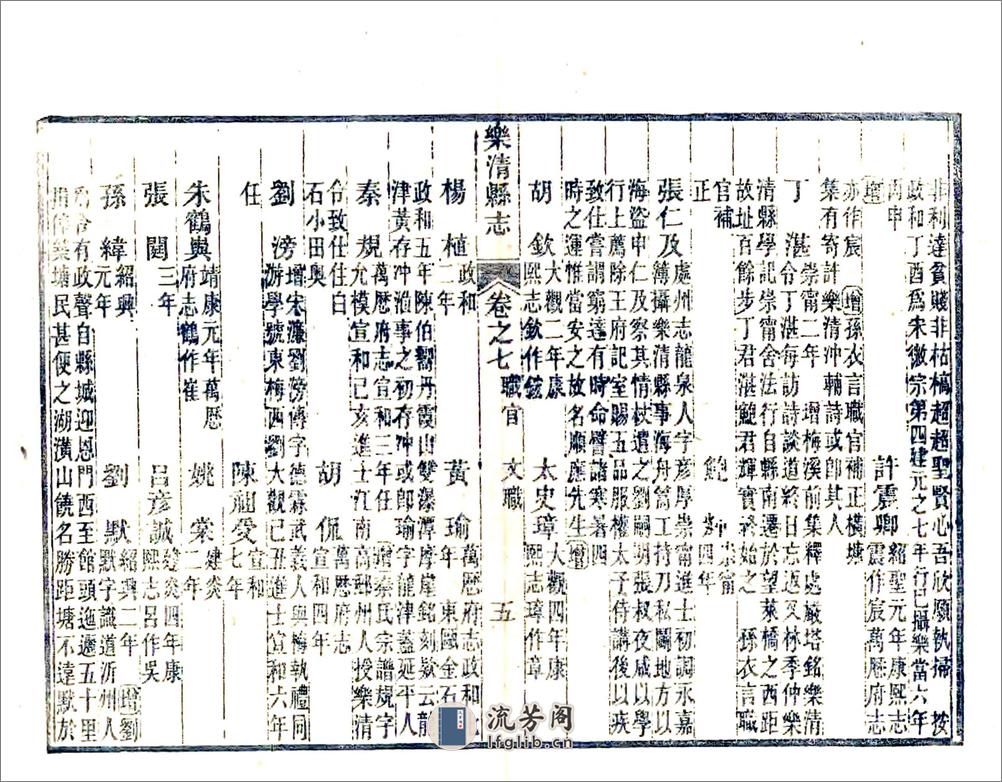 非利達貧賤非枯槁超超聖賢心吾欣願執掃 按
政和丁酉為宋徽宗第四建元之七年行已攝樂當六年
丙申 許震卿 紹聖元年康熙志
震作宸萬厯府志
亦作宸 增孫衣言職官補正橫塘
集有寄許樂清沖輔詩或即其人
丁湛 崇甯二年 增梅溪前集釋處嚴塔銘樂清
令丁湛每訪詩談道終日忘返又林季仲樂
清縣學記崇甯舍法行自縣南遷於望萊橋之西距
故址百餘步丁君湛鮑君輝實終始之 孫衣言職
官補
正 鮑 崇甯
四年
張仁及 處州志龍泉人字彥厚崇甯進士初調永嘉
簿攝樂清縣事海舟篙工持刀私鬬地方以
海盜申仁及察其情杖遣之劉嗣明張叔夜咸以學
行上薦除王府記室賜五品服權太子侍講後以疾
致仕嘗謂窮達有時命譬諸寒暑四
時之運惟當安之故名順應先生 增
胡欽 大觀二年康
熙志欽作鉉 太史璋 大觀四年康
熙志璋作章
樂清縣志 卷之七 職官 文職 五
楊植 政和
二年 黃瑜 萬厯府志政和七
年 東國金石
政和五年陳伯嚮丹霞山雙瀑潭摩崖銘刻嶽云龍
津黃存沖涖事之初存沖或即瑜字龍津蓋延平人
秦規 萬厯府志宣和三年任 增秦氏宗譜規字
允模宣和己亥進士江南高郵州人授樂清
令致仕住白
石小田奧 胡侃 萬厯府志
宣和四年
劉滂 增宋濂劉滂傳字德霖武義人與梅執禮同
游學號東梅西劉大觀己丑進士宣和六年
任 陳祖受 宣和
七年
朱鶴與 靖康元年萬厯
府志鶴作崔 姚棠 建炎
二年
張闓 三年 呂彥誠 建炎四年康
熙志呂作吳
孫緯 紹興
元年 劉默 紹興二年 增劉
默字識道沂州人
為令有政聲自縣城迎恩門西至館頭迤邐五十里
用傳築塘民甚便之湖潢山饒名勝距塘不遠默於
流芳阁
lfglib.cn